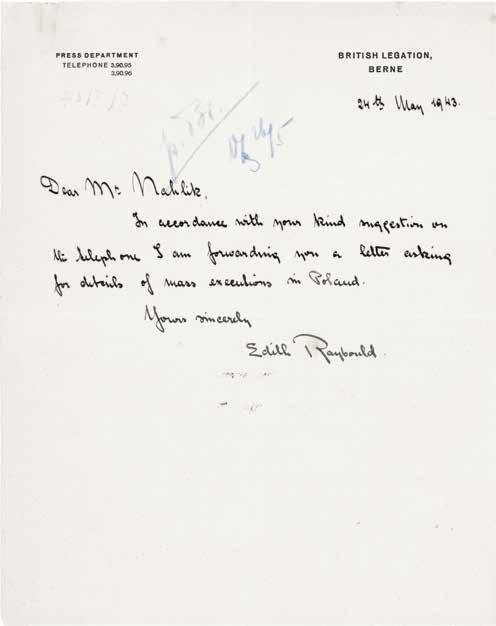 PRESS DEPARTMENT
TELEPHONE 3,90.95
3,90.96
BRITISH LEGATION,
BERNE
24th May 1943.
Dear Mr Nahlik,
In accordance with your kind suggestion on
the telephone I am forwarding you a letter asking
for details of mass executions in Poland.
Yours sincerely
Edith Raybould.